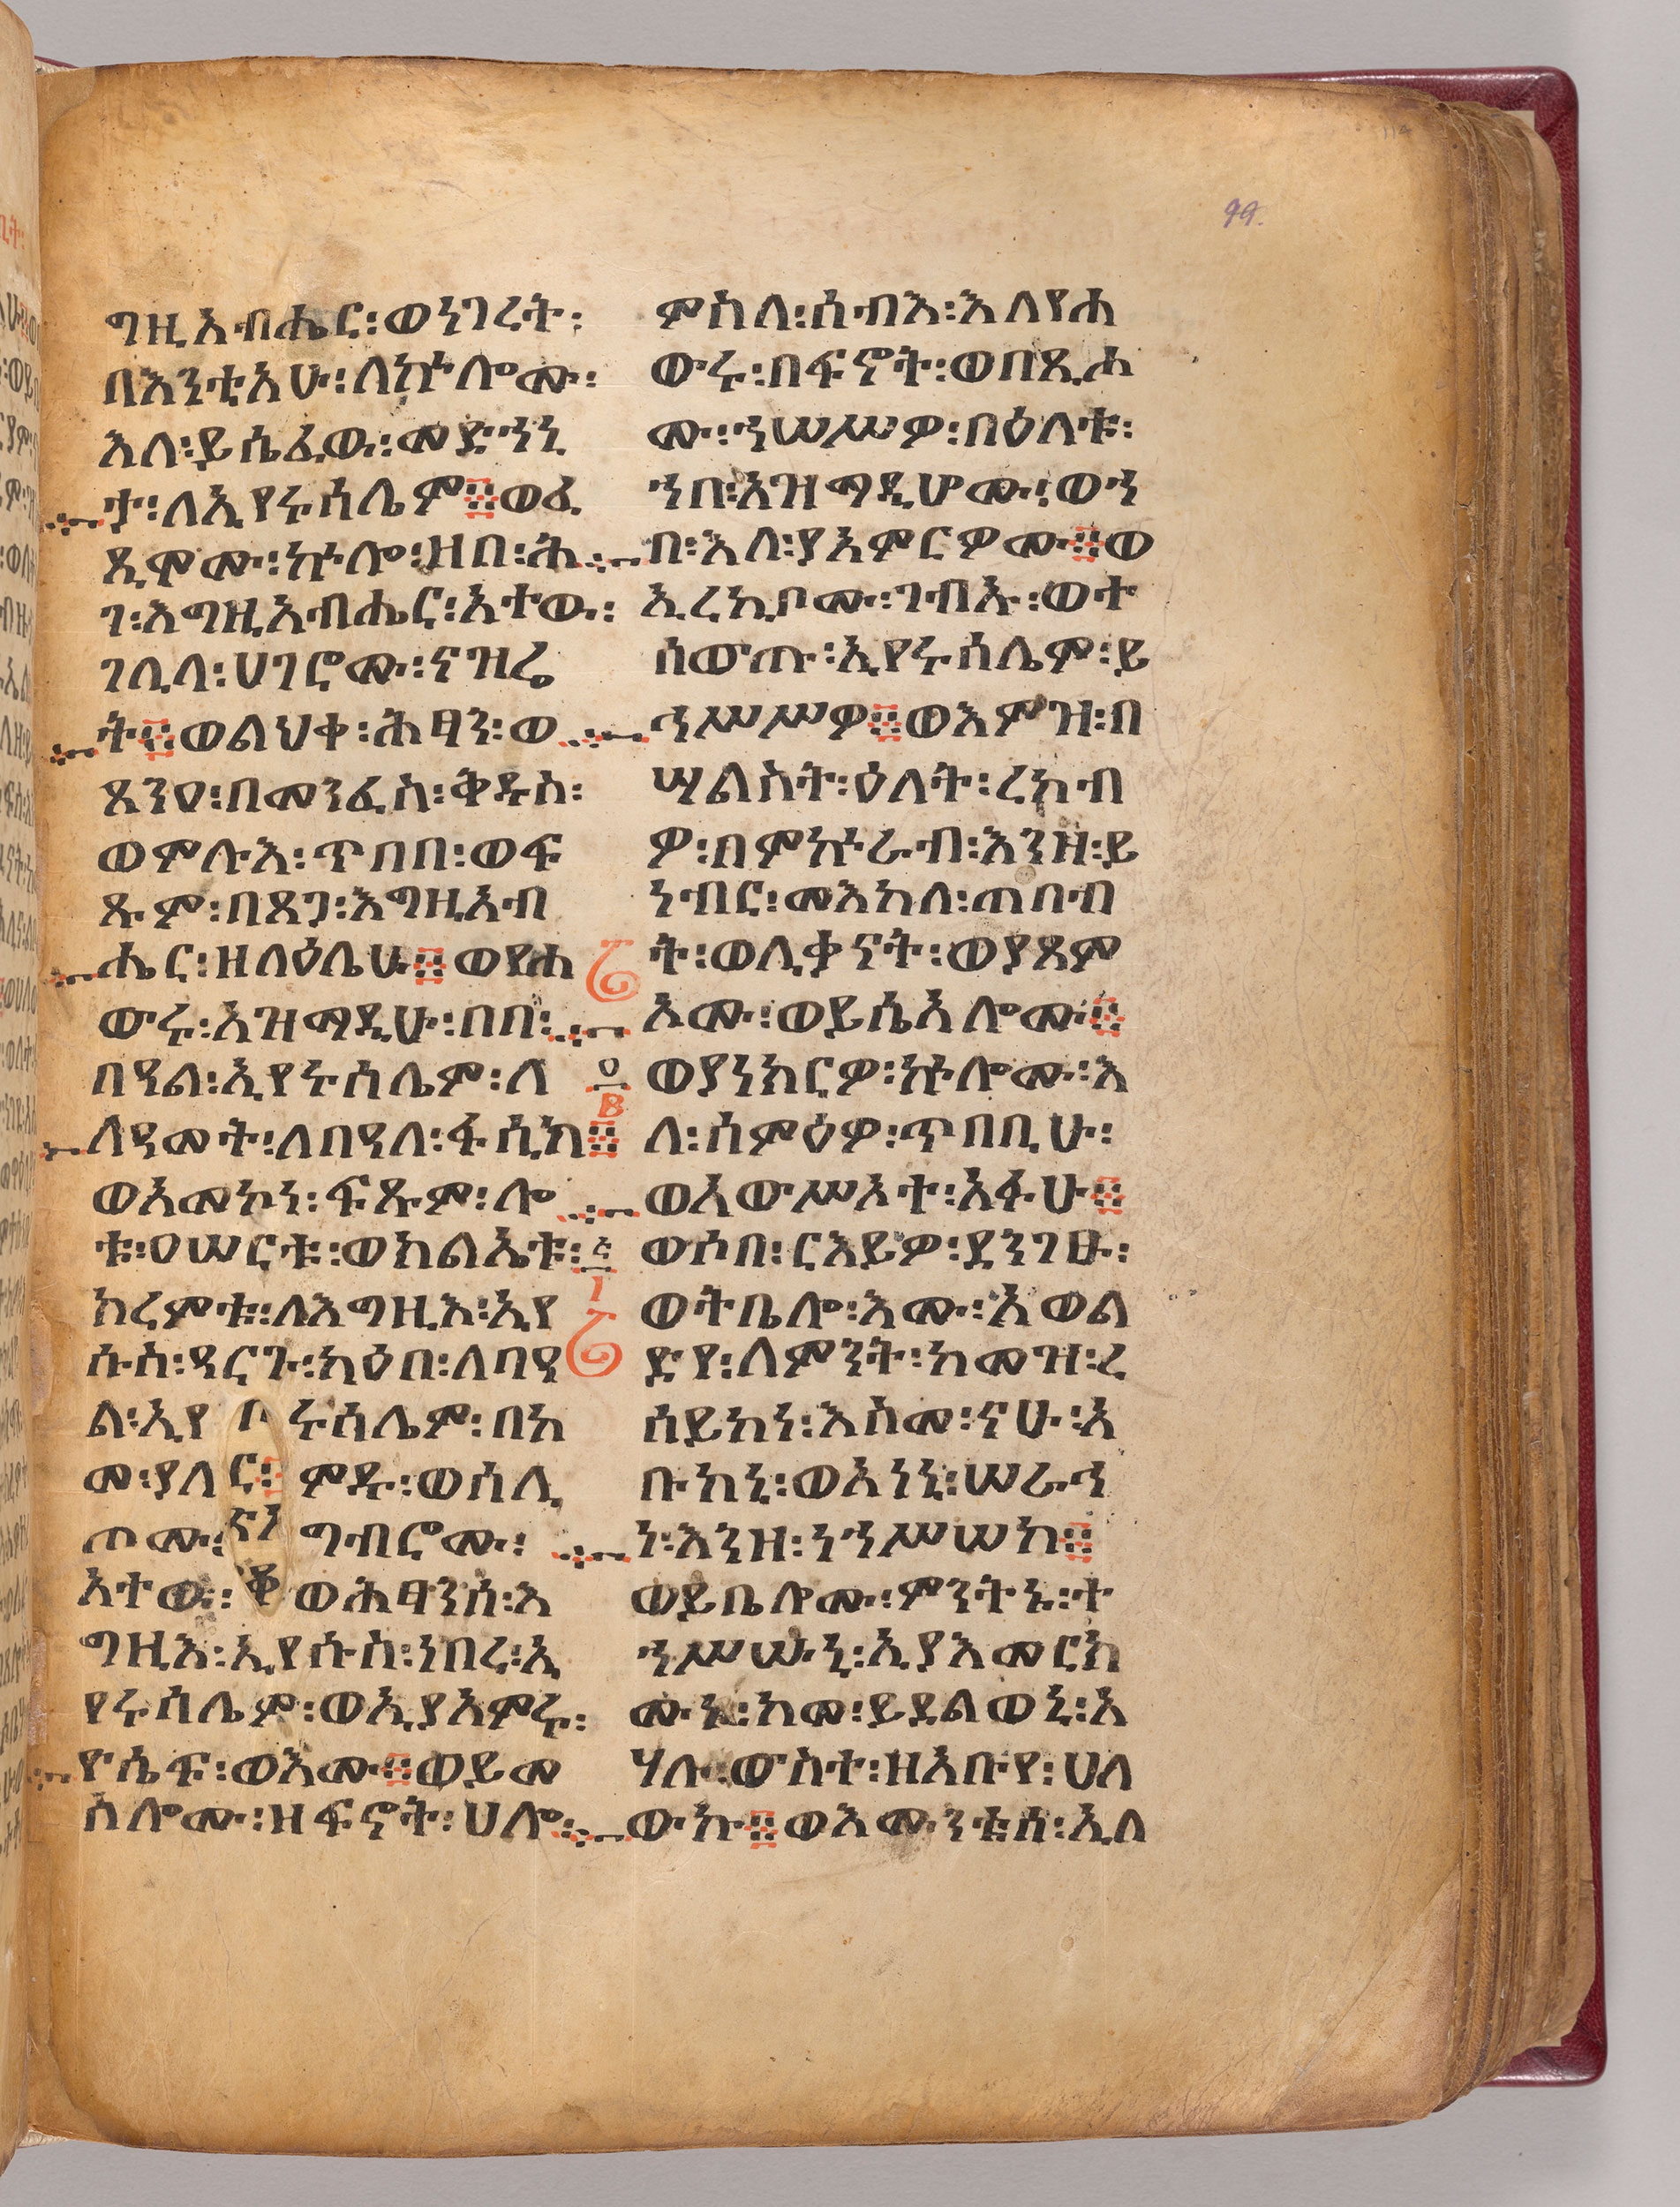 99.
114
ግዚአብሔር፡ወነገረት፡
በእንቲአሁ፡ለኵሎሙ፡
እለ፡ይሴፈዉ፡መድኀኒ
ታ፡ለኢየሩሳሌም፨ወፈ
ጺሞሙ፡ኵሎ፡ዘበ፡ሕ
ገ፡እግዚአብሔር፡አተዉ፡
ገሊላ፡ሀገሮሙ፡ናዝሬ
ት፨ወልህቀ፡ሕፃን፡ወ
ጸንዐ፡በመንፈስ፡ቅዱስ፡
ወምሉእ፡ጥበበ፡ወፍ
ጹም፡በጸጋ፡እግዚአብ
ሔር፡ዘላዕሌሁ፨ወየሐ
ውሩ፡አዝማዲሁ፡በበ፡
በዓል፡ኢየሩሳሌም፡ለ
ለዓመት፡ለበዓለ፡ፋሲካ፨
ወአመኮነ፡ፍጹም፡ሎ
ቱ፡ዐሠርቱ፡ወክልኤቱ፡
ክረምቱ፡ለእግዚእ፡ኢየ
ሱስ፡ዓርጉ፡ካዕበ፡ለባዓ
ል፡ኢየሩሳሌም፡በከ
መ፡ያለምዱ፡ወሰሊ
ጦሙ፡ግብሮሙ፡
አተዉ፡ወሕፃንሰ፡እ
ግዚእ፡ኢየሱስ፡ነበረ፡ኢ
የሩሳሌም፡ወኢያእምሩ፡
ዮሴፍ፡ወእሙ፨ወይመ
ስሎሙ፡ዘፍኖት፡ሀሎ፡
ምስለ፡ሰብእ፡እለየሐ
ውሩ፡በፍኖት፡ወበጺሖ
ሙ፡ኀሠሥዎ፡በዕለቱ፡
ኀበ፡አዝማዲሆሙ፡ወኀ
በ፡እለ፡ያአምርዎሙ፨ወ
ኢረኪቦሙ፡ገብኡ፡ወተ
ሰውጡ፡ኢየሩሳሌም፡ይ
ኅሥሥዎ፨ወእምዝ፡በ
ሣልስት፡ዕለት፡ረከብ
ዎ፡በምኵራብ፡እንዘ፡ይ
ነብር፡መእከለ፡ጠበብ
ት፡ወሊቃናት፡ወያጸም
ኦሙ፡ወይሴአሎሙ፨
ወያነክርዎ፡ኵሎሙ፡እ
ለ፡ሰምዕዎ፡ጥበቢሁ፡
ወአውሥኦተ፡አፉሁ፨
ወሶበ፡ርእይዎ፡ደንገፁ፡
ወትቤሎ፡እሙ፡እወል
ድየ፡ለምንት፡ከመዝ፡ረ
ሰይከነ፡እስመ፡ናሁ፡አ
ቡከኒ፡ወአነኒ፡ሠራኅ
ነ፡እንዘ፡ነኀሥሠከ፨
ወይቤሎሙ፡ምንትኑ፡ተ
ኀሥሡኒ፡ኢያእመርክ
ሙኑ፡ከመ፡ይደልወኒ፡እ
ሃሉ፡ውስተ፡ዘአቡየ፡ሀለ
ውኩ፨ወእሙንቱሰ፡ኢለ